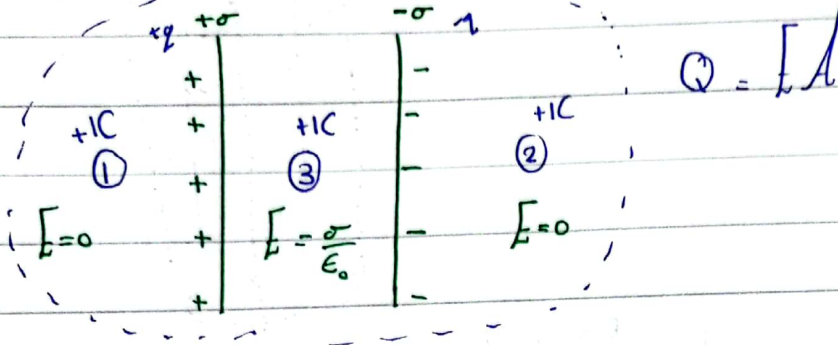 +q +σ -σ
Q = EA
+1C +1C +1C
① ③ ②
E=0 E = σ/ε₀ E=0